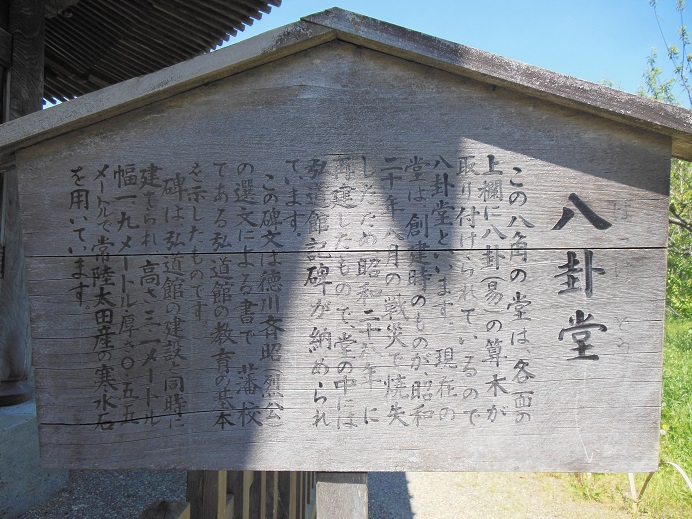 八卦堂
はっけどう
この八角の堂は、各面の
上欄に八卦(易)の算木が
取り付けられているので
八卦堂といいます。現在の
堂は創建時のものが、昭和
二十年八月の戦災で焼失
したため昭和二十八年に
再建したもので、堂の中には
弘道館記碑が納められ
ています。
この碑文は徳川斉昭(烈公)
の選文による書で、藩校
である弘道館の教育の基本
を示したものです。
碑は弘道館の建設と同時に
建てられ、高さ三.一メートル
幅一.九メートル厚さ〇.五五
メートルで常陸太田産の寒水石
を用いています。